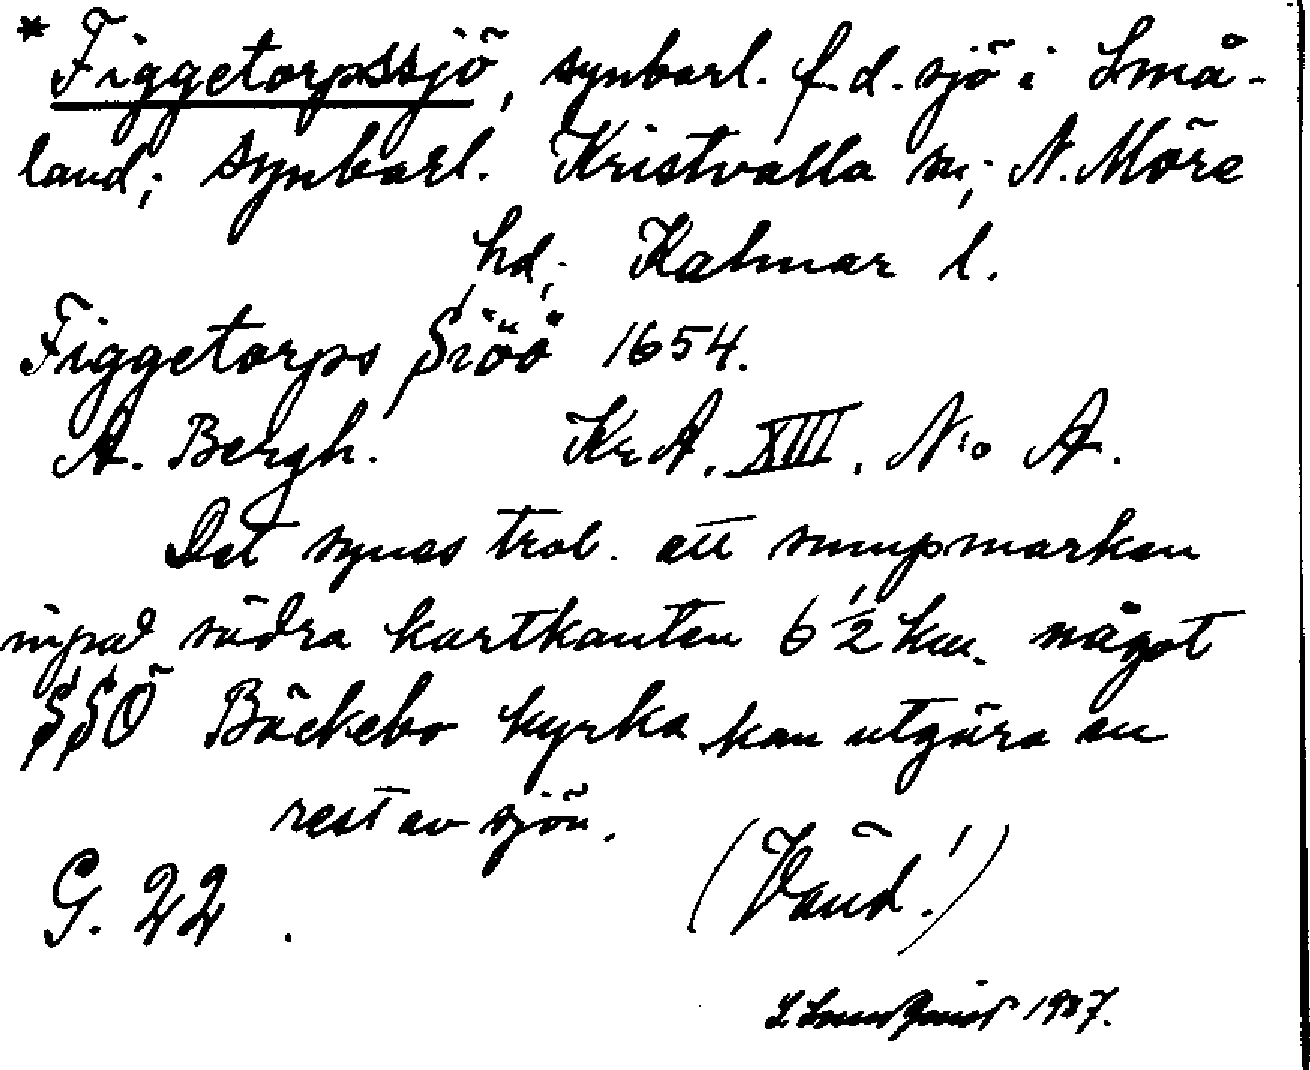 * Figgetorpssjö, synbarl. f.d. sjö i Små-
land; synbarl. Kristvalla sn; N. Möre
hd; Kalmar l.
Figgetorps Siöö 1654.
A. Bergh. Kr.A. XIII. No A.
Det synes trol. att sumpmarken
invid södra kartkanten 6 1/2 km. något
SSÖ Bäckebo kyrka kan utgöra en
rest av sjön.
G. 22. (Vänd!)
1987.